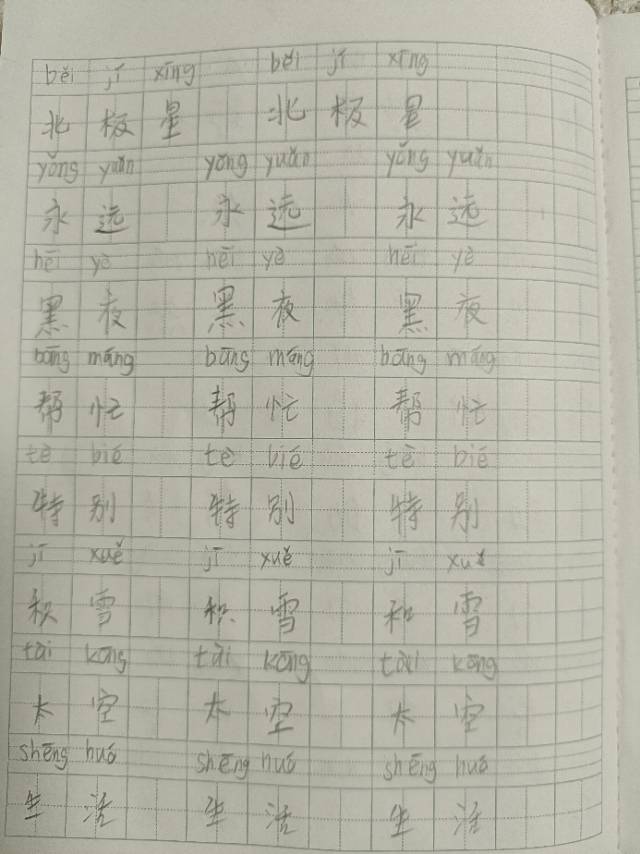 běi jí xīng běi jí xīng
北 极 星 北 极 星
yǒng yuǎn yǒng yuǎn yǒng yuǎn
永 远 永 远 永 远
hēi yè hēi yè hēi yè
黑 夜 黑 夜 黑 夜
bāng máng bāng máng bāng máng
帮 忙 帮 忙 帮 忙
tè bié tè bié tè bié
特 别 特 别 特 别
jī xuě jī xuě jī
积 雪 积 雪 和 雪
tài kōng tài kōng tài kōng
太 空 太 空 太 空
shēng huó shēng huó shēng huó
生 活 生 活 生 活